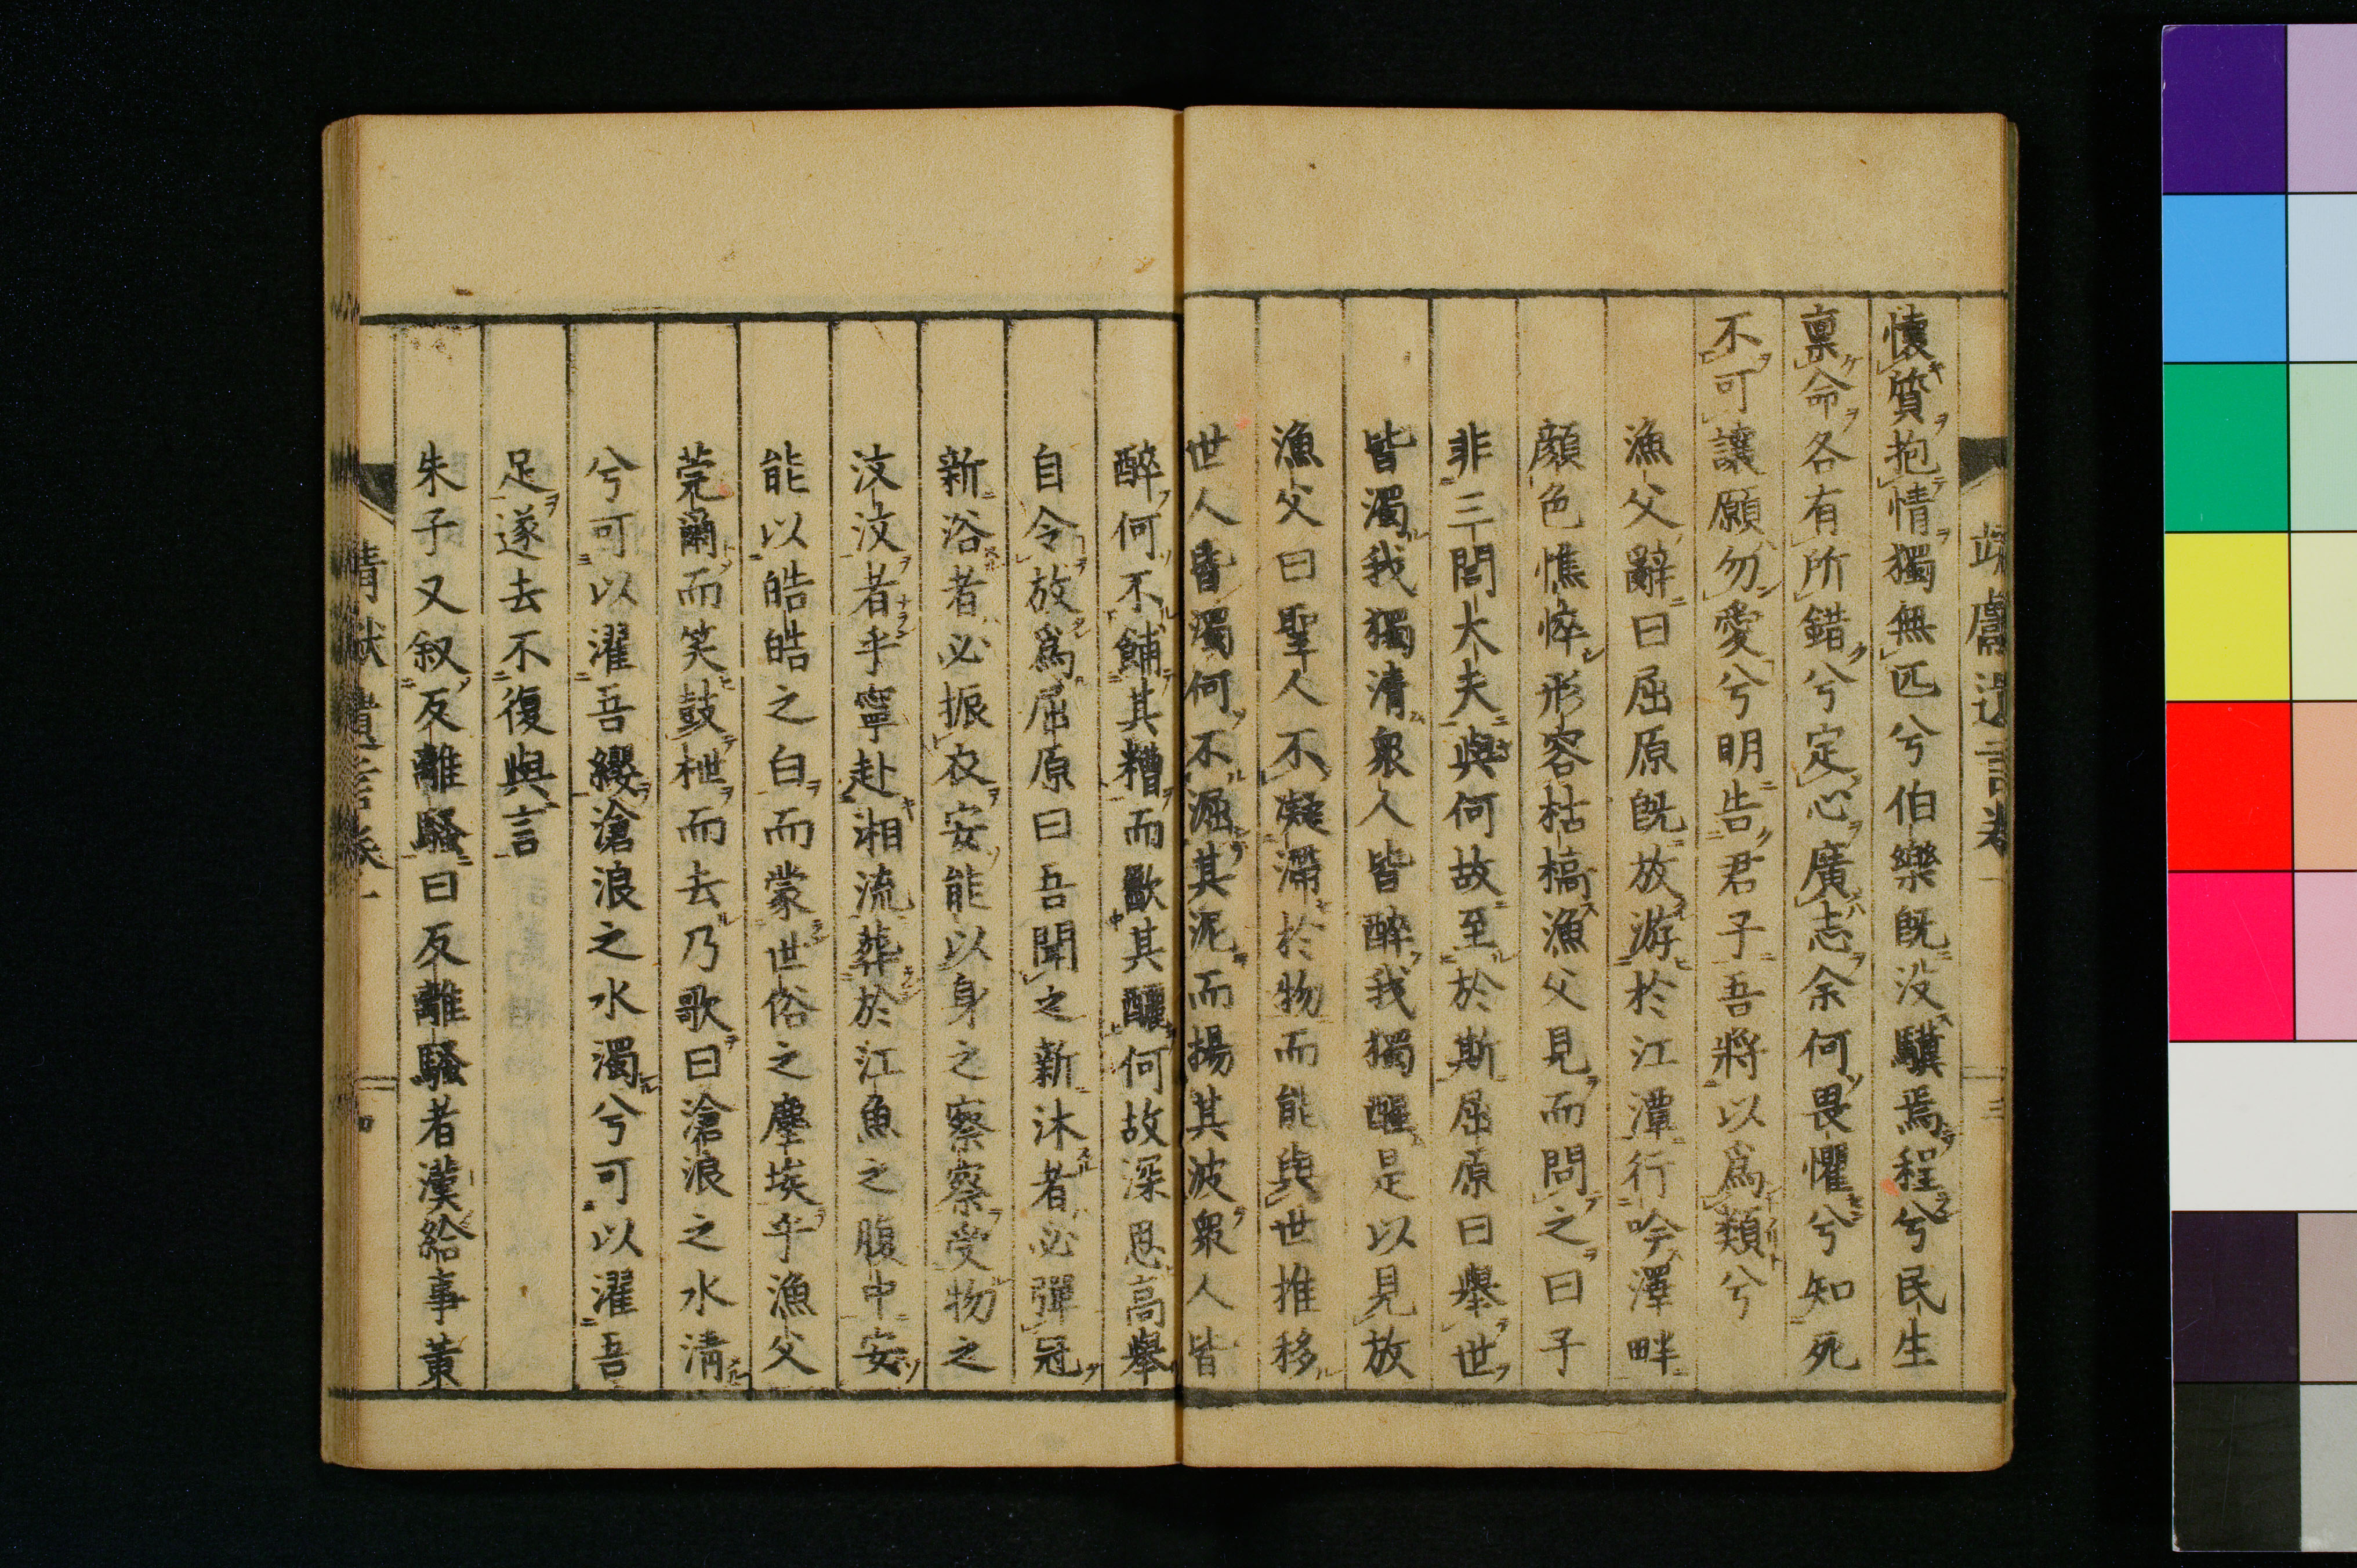 懐質抱情獨無匹兮伯樂既没驥焉程兮民生
稟命各有所錯兮定心廣志余何畏懼兮知死
不可讓願勿愛兮明告君子吾將以爲類兮
漁父辭曰屈原既放游於江潭行吟澤畔
顔色憔悴形容枯槁漁父見而問之曰子
非三閭大夫與何故至於斯屈原曰舉世
皆濁我獨清衆人皆醉我獨醒是以見放
漁父曰聖人不凝滯於物而能與世推移
世人皆濁何不淈其泥而揚其波衆人皆
醉何不餔其糟而歠其釃何故深思高舉
自令放爲屈原曰吾聞之新沐者必彈冠
新浴者必振衣安能以身之察察受物之
汶汶者乎寧赴湘流葬於江魚之腹中安
能以皓皓之白而蒙世俗之塵埃乎漁父
莞爾而笑鼓枻而去乃歌曰滄浪之水清
兮可以濯吾纓滄浪之水濁兮可以濯吾
足遂去不復與言
朱子又叙反離騷曰反離騷者漢給事黄